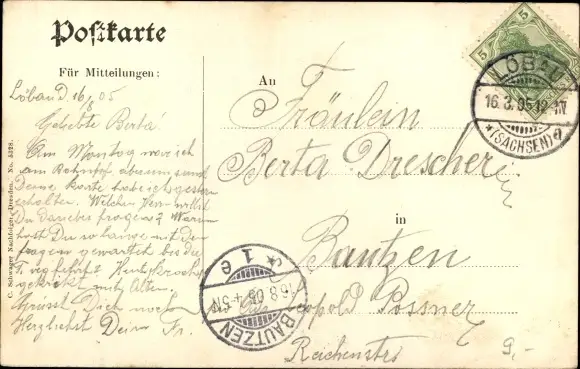 Postkarte
Für Mitteilungen:
Löbau d. 16/8 05
Geliebte Berta!
Am Montag war ich
am Bahnhof
Deine Karte habe ich gestern
erhalten. Welchen willst
Du fragen? Warum
hast Du so lange mit den
fragen gewartet bis die

mit Alten.
Grüsst Dich noch
Herzlichst Deine Fr.
C. Schwager Nachfolger, Dresden. No. 5328.
An
Fräulein
Berta Drescher
in
Bautzen
Leopold Possner
Reichenstrs
9,-
5
5
LÖBAU
16.3.05 12-1N
*(SACHSEN) a
BAUTZEN
16.8.05 4-5N
* 1 e